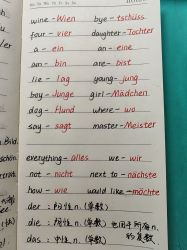 wine - Wien bye - tschüss
four - vier daughter - Tochter
a - ein an - eine
am - bin are - bist
lie - lag young - jung
boy - Junge girl - Mädchen
dog - Hund where - wo
say - sagt master - Meister
everything - alles we - wir
not - nicht next to - nächste
how - wie would like - möchte
der : 阳性 n. (单数)
die : 阴性 n. (单数) 也用于所有 n. 的复数
das : 中性 n. (单数)